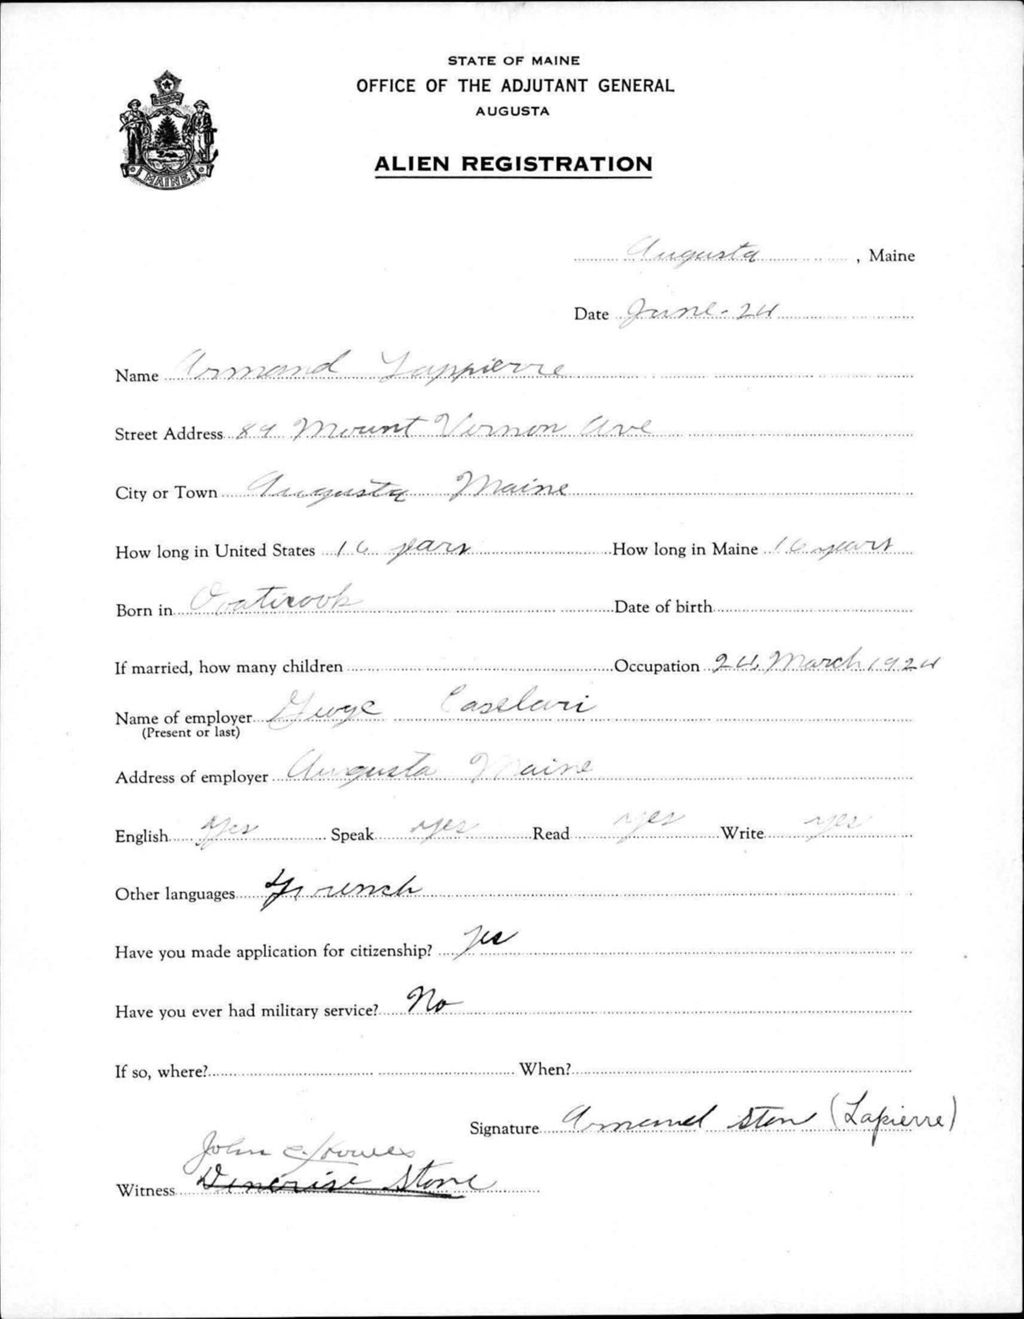 STATE OF MAINE
OFFICE OF THE ADJUTANT GENERAL
AUGUSTA
ALIEN REGISTRATION
MAINE
Augusta, Maine
Date June - 24
Name Armand Lappierre
Street Address 89 Mount Vernon Ave
City or Town Augusta Maine
How long in United States 16 years How long in Maine 16 years
Born in Date of birth
If married, how many children Occupation 24, March 1924
Name of employer George
(Present or last)
Address of employer Augusta Maine
English Yes Speak yes Read yes Write yes
Other languages French
Have you made application for citizenship? Yes
Have you ever had military service? No
If so, where? When?
Signature Armand Ston (Lapierre)
John
Witness Stone